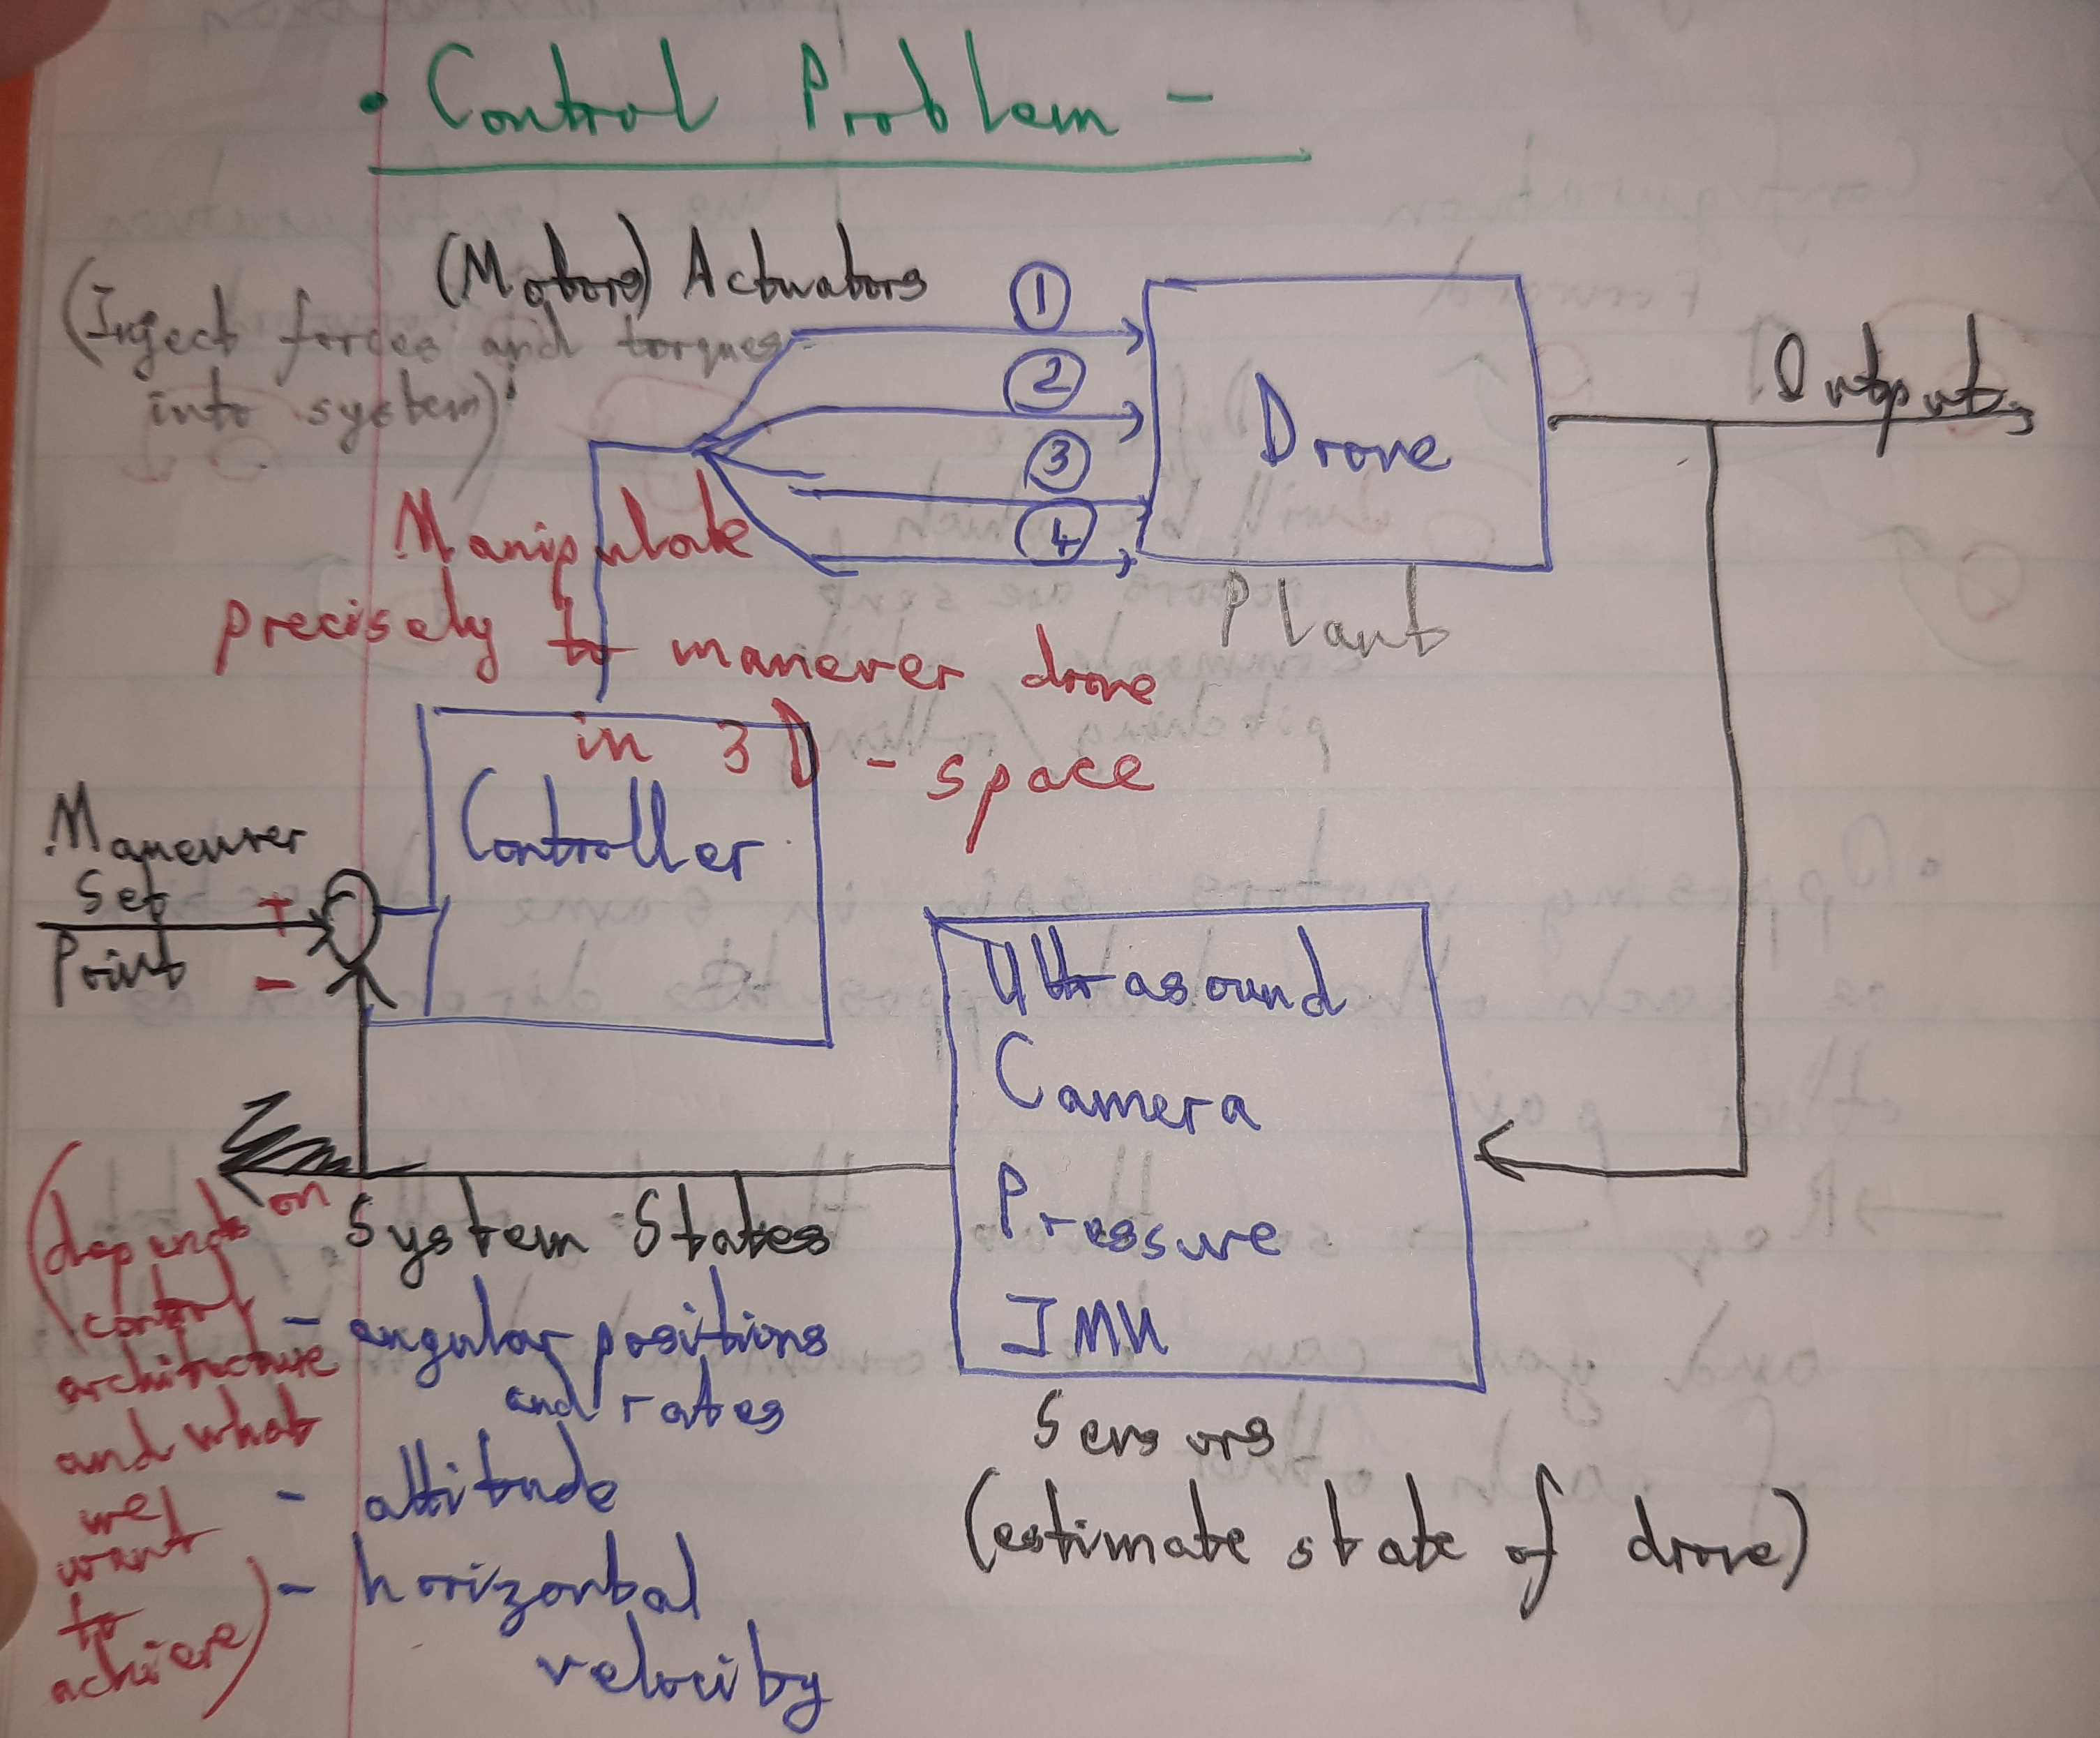 • Control Problem -
(Motors) Actuators
(Inject forces and torques
into system)
1
2
3
4
Drone
Plant
Output
Manipulate
precisely to manever drone
in 3D - space
Controller
Maneuver
Set
Point
+
-
Ultrasound
Camera
Pressure
IMU
Sensors
(estimate state of drone)
System States
- angular positions
and rates
- attitude
- horizontal
velocity
(depends on
control
architecture
and what
we
want
to
achieve)